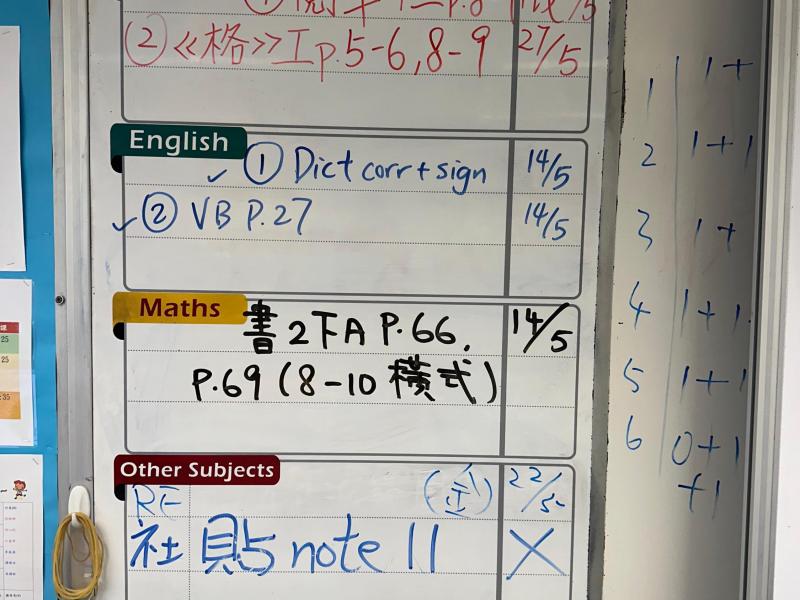 ② 《格》工p.5-6,8-9 27/5
English
① Dict corr + sign 14/5
② VB P.27 14/5
Maths
書2下A P.66, 14/5
P.69 (8-10 橫式)
Other Subjects
RE 22/5
社 貼 note 11 X
1 1+
2 1+1
3 1+
4 1+1
5 1+1
6 0+1
+1